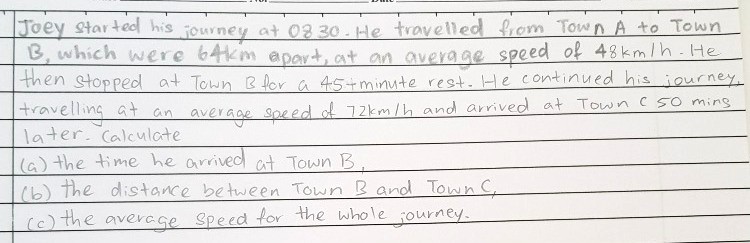 Joey started his journey at 0830. He travelled from Town A to Town
B, which were 64km apart, at an average speed of 48km/h. He
then stopped at Town B for a 45-minute rest. He continued his journey,
travelling at an average speed of 72km/h and arrived at Town C 50 mins
later. Calculate
(a) the time he arrived at Town B,
(b) the distance between Town B and Town C,
(c) the average speed for the whole journey.